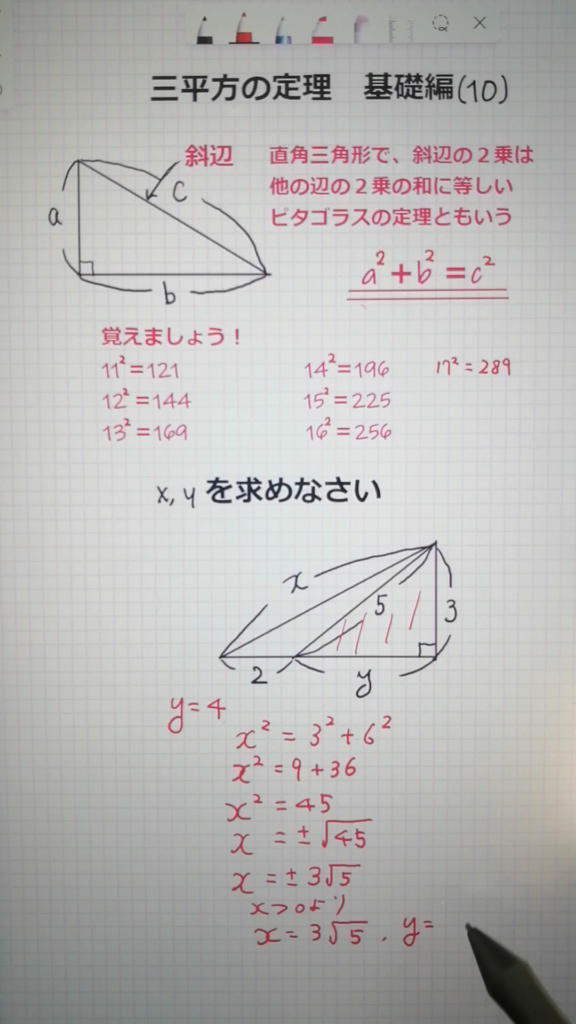 三平方の定理 基礎編(10)
斜辺
直角三角形で、斜辺の2乗は
他の辺の2乗の和に等しい
ピタゴラスの定理ともいう
a
c
b
a²+b²=c²
覚えましょう!
11²=121
12²=144
13²=169
14²=196
15²=225
16²=256
17²=289
x, y を求めなさい
x
5
3
2
y
y=4
x²=3²+6²
x²=9+36
x²=45
x=±√45
x=±3√5
x>0より
x=3√5, y=